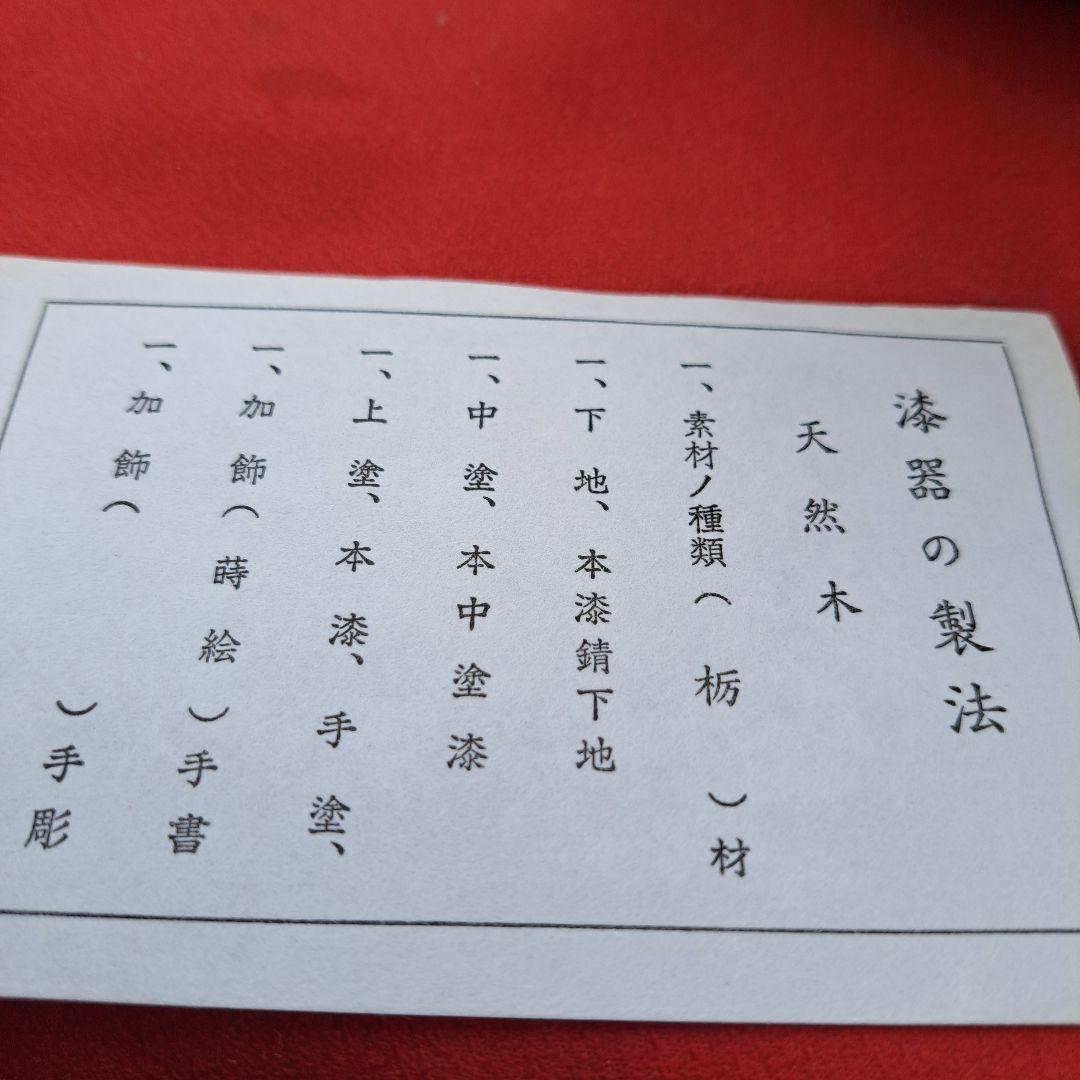 漆器の製法
天然木
一、素材ノ種類（栃）材
一、下地、本漆錆下地
一、中塗、本中塗漆
一、上塗、本漆、手塗、
一、加飾（蒔絵）手書
一、加飾（）手彫